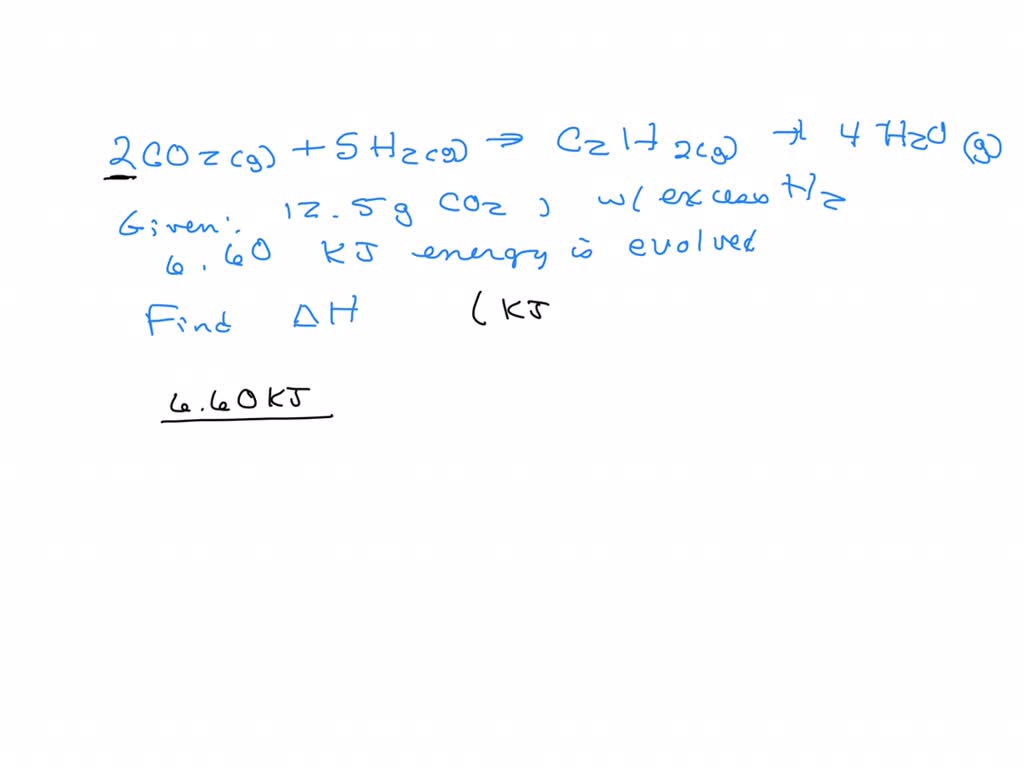 2CO2(g) + 5H2(g) → C2H2(g) + 4H2O(g)
Given: 12.5g CO2, w/ excess H2
6.60 KJ energy is evolved
Find ΔH (KJ
6.60KJ